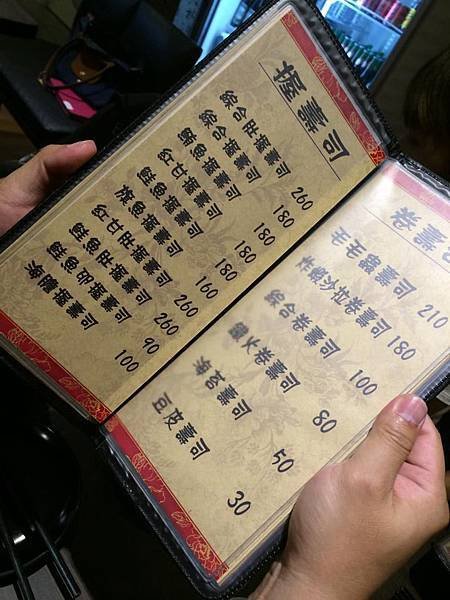 握壽司
綜合肚握壽司 260
綜合握壽司 180
鮭魚握壽司 180
紅甘握壽司 180
旗魚握壽司 160
紅甘肚握壽司 260
鮭魚肚握壽司 260
握壽司 90
握壽司 100
卷壽
毛毛蟲壽司 210
炸蝦沙拉卷壽司 180
綜合卷壽司 100
鐵火卷壽司 80
海苔壽司 50
豆皮壽司 30